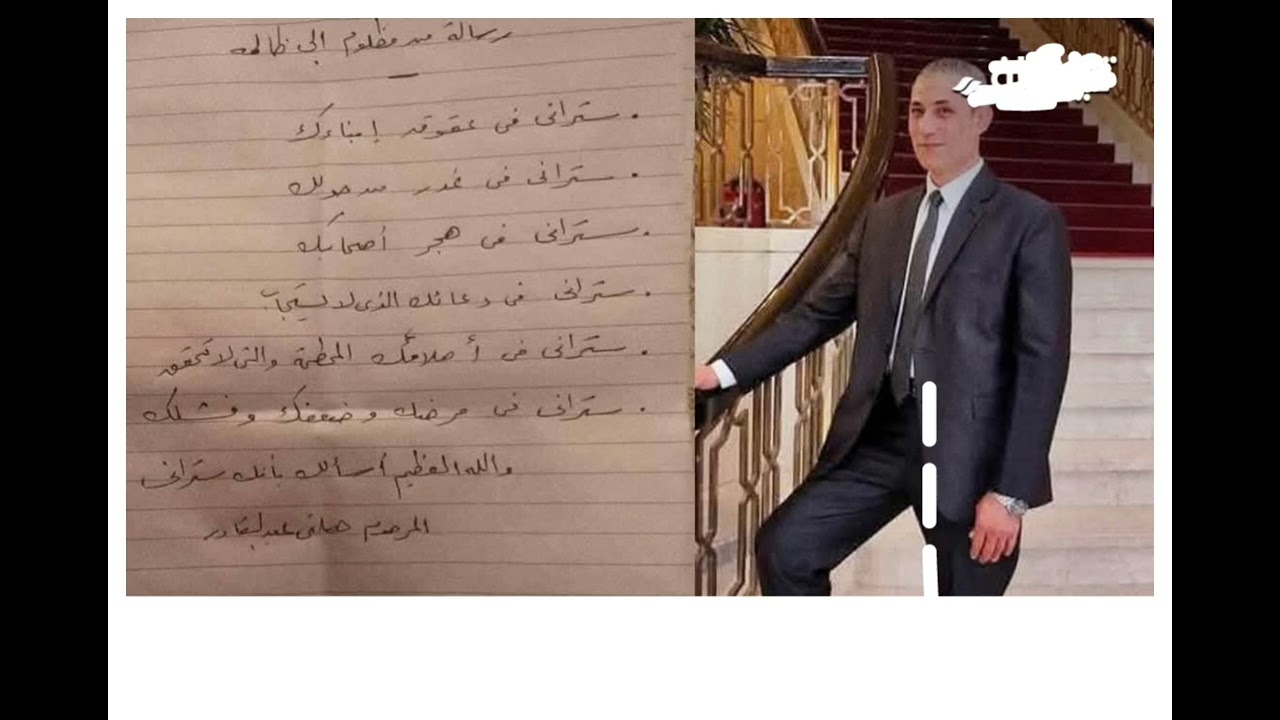 رسالة من مظلوم إلى ظالمه
. سترانى فى عقوق إبناءك
. سترانى فى غدر من حولك
. سترانى فى هجر أصحابك
. سترانى فى دعائك الذى لا يستجاب
. سترانى فى أحلامك المحطمة والتى لا تحقق
. سترانى فى مرضك وضعفك وفشلك
والله العظيم أسألك بأنك سترانى
المرحوم هانى عبد القادر